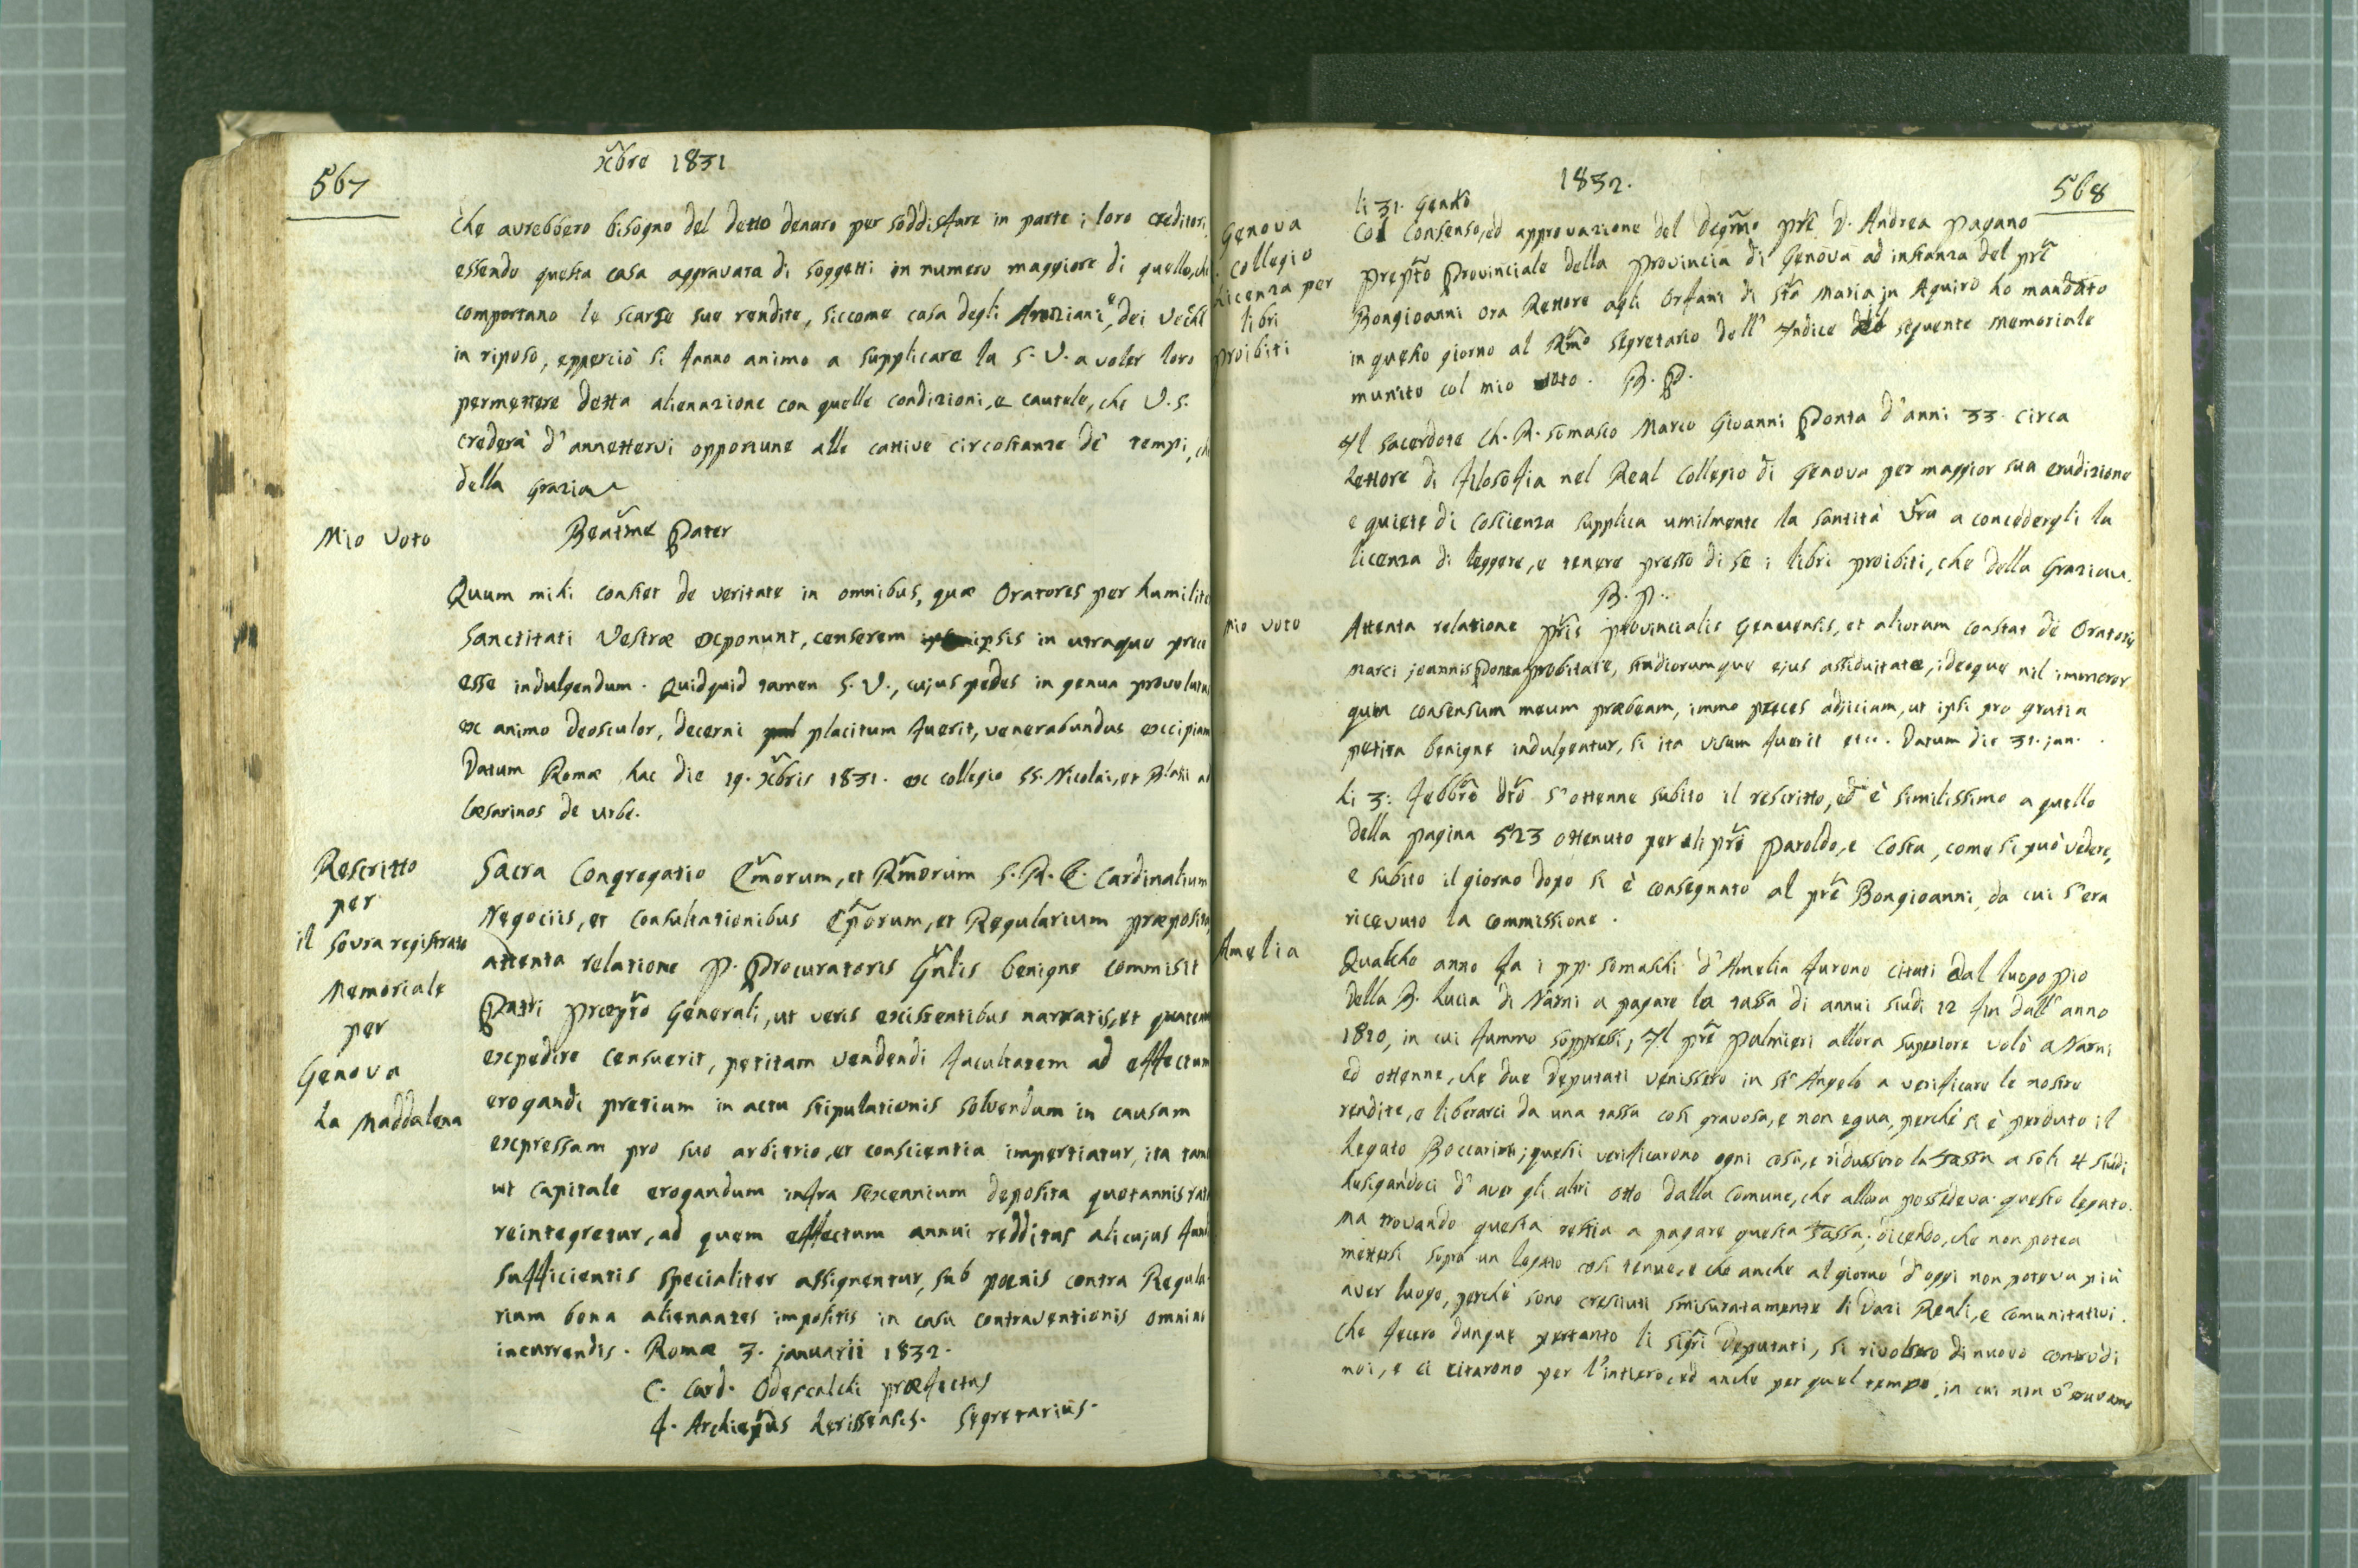 567
xbre 1831
che avrebbero bisogno del detto denaro per soddisfare in parte i loro creditori,
essendo questa casa aggravata di soggetti in numero maggiore di quello, che
comportano le scarse sue rendite, siccome casa degli Anziani, e dei Vecchi
in riposo, epperciò si fanno animo a supplicare la S. V. a voler loro
permettere detta alienazione con quelle condizioni, e cautele, che V. S.
crederà d'annettervi opportune alle cattive circostanze de' tempi, che
della grazia
Mio Voto
Beatme Pater
Quum mihi constet de veritate in omnibus, quæ Oratores per humilite
Sanctitati Vestræ exponunt, censerem ipsis in utraque prece
esse indulgendum. Quidquid tamen S. V., cujus pedes in genua provolutus
ex animo deosculor, decerni placitum fuerit, venerabundus excipiam
Datum Romæ hac die 19. xbris 1831. ex collegio SS. Nicolai, et Blasii ad
Cæsarinos de Urbe.
Rescritto
per
il sovra registrato
Memoriale
per
Genova
La Maddalena
Sacra Congregatio Emorum, et Rmorum S. R. E. Cardinalium
Negociis, et Consultationibus Eporum, et Regularium præposita,
attenta relatione P. Procuratoris Gnlis benigne commisit
Patri Præpto Generali, ut veris existentibus narratis, et quatenus
expedire censuerit, petitam vendendi facultatem ad effectum
erogandi pretium in actu stipulationis solvendum in causam
expressam pro suo arbitrio, et conscientia impertiatur, ita tamen
ut capitale erogandum infra sexennium deposita quotannis rata
reintegretur, ad quem effectum annui redditus alicujus fundi
sufficientis specialiter assignentur, sub pœnis contra Regula-
rium bona alienantes impositis in casu contraventionis omnino
incurrendis. Romæ 3. januarii 1832.
C. Card. Odescalchi præfectus
f. Archiepus Serissensis. Segretarius.
1832.
568
Genova
Collegio
Licenza per
libri
proibiti
li 31. Genno
Col Consenso, ed approvazione del degmo pre D. Andrea Pagano
Prepto Provinciale della Provincia di Genova ad instanza del pre
Bongioanni ora Rettore agli Orfani di Sta Maria in Aquiro ho mandato
in questo giorno al Rmo Segretario dell' Indice del seguente memoriale
munito col mio voto. B. P.
Il Sacerdote Ch. R. Somasco Marco Gioanni Ponta d'anni 33. circa
Lettore di filosofia nel Real Collegio di Genova per maggior sua erudizione
e quiete di coscienza supplica umilmente la Santità Vra a concedergli la
licenza di leggere, e tenere presso di se i libri proibiti, che della Grazia.
B. P.
Mio voto
Attenta relatione Pris Provincialis Genuensis, et aliorum constat de Oratoris
Marci joannis Ponta probitate, studiorumque ejus assiduitate, ideoque nil immoror
quin consensum meum præbeam, immo preces adjiciam, ut ipsi pro gratia
petita benigne indulgentur, si ita visum fuerit etc. Datum die 31. jan.
Li 3: Febbro dto s'ottenne subito il rescritto, ed è similissimo a quello
della pagina 523 ottenuto per gli pri Paroldo, e Costa, come si può vedere,
e subito il giorno dopo si è consegnato al pre Bongioanni, da cui s'era
ricevuto la commissione.
Amelia
Qualche anno fa i pp. Somaschi d'Amelia furono citati dal luogo pio
della B. Lucia di Narni a pagare la tassa di annui scudi 12 fin dall' anno
1810, in cui fummo soppressi, Il pre Palmieri allora superiore volò a Narni
ed ottenne, che due deputati venissero in St' Angelo a verificare le nostre
rendite, e liberarci da una tassa così gravosa, e non equa, perchè si è perduto il
Legato Boccarini; questi verificarono ogni cosa, e ridussero la tassa a soli 4 scudi
lusigandoci d'aver gli altri otto dalla Comune, che allora possedeva questo legato.
Ma trovando questa restia a pagare questa tassa, dicendo, che non potea
mettersi sopra un legato così tenue, e che anche al giorno d'oggi non poteva più
aver luogo, perchè sono cresciuti smisuratamente li Dazi Reali, e comunitativi.
che fecero dunque pertanto li sigri Deputati, si rivolsero di nuovo contro di
noi, e ci citarono per l'intiero, ed anche per quel tempo, in cui non v'eravamo